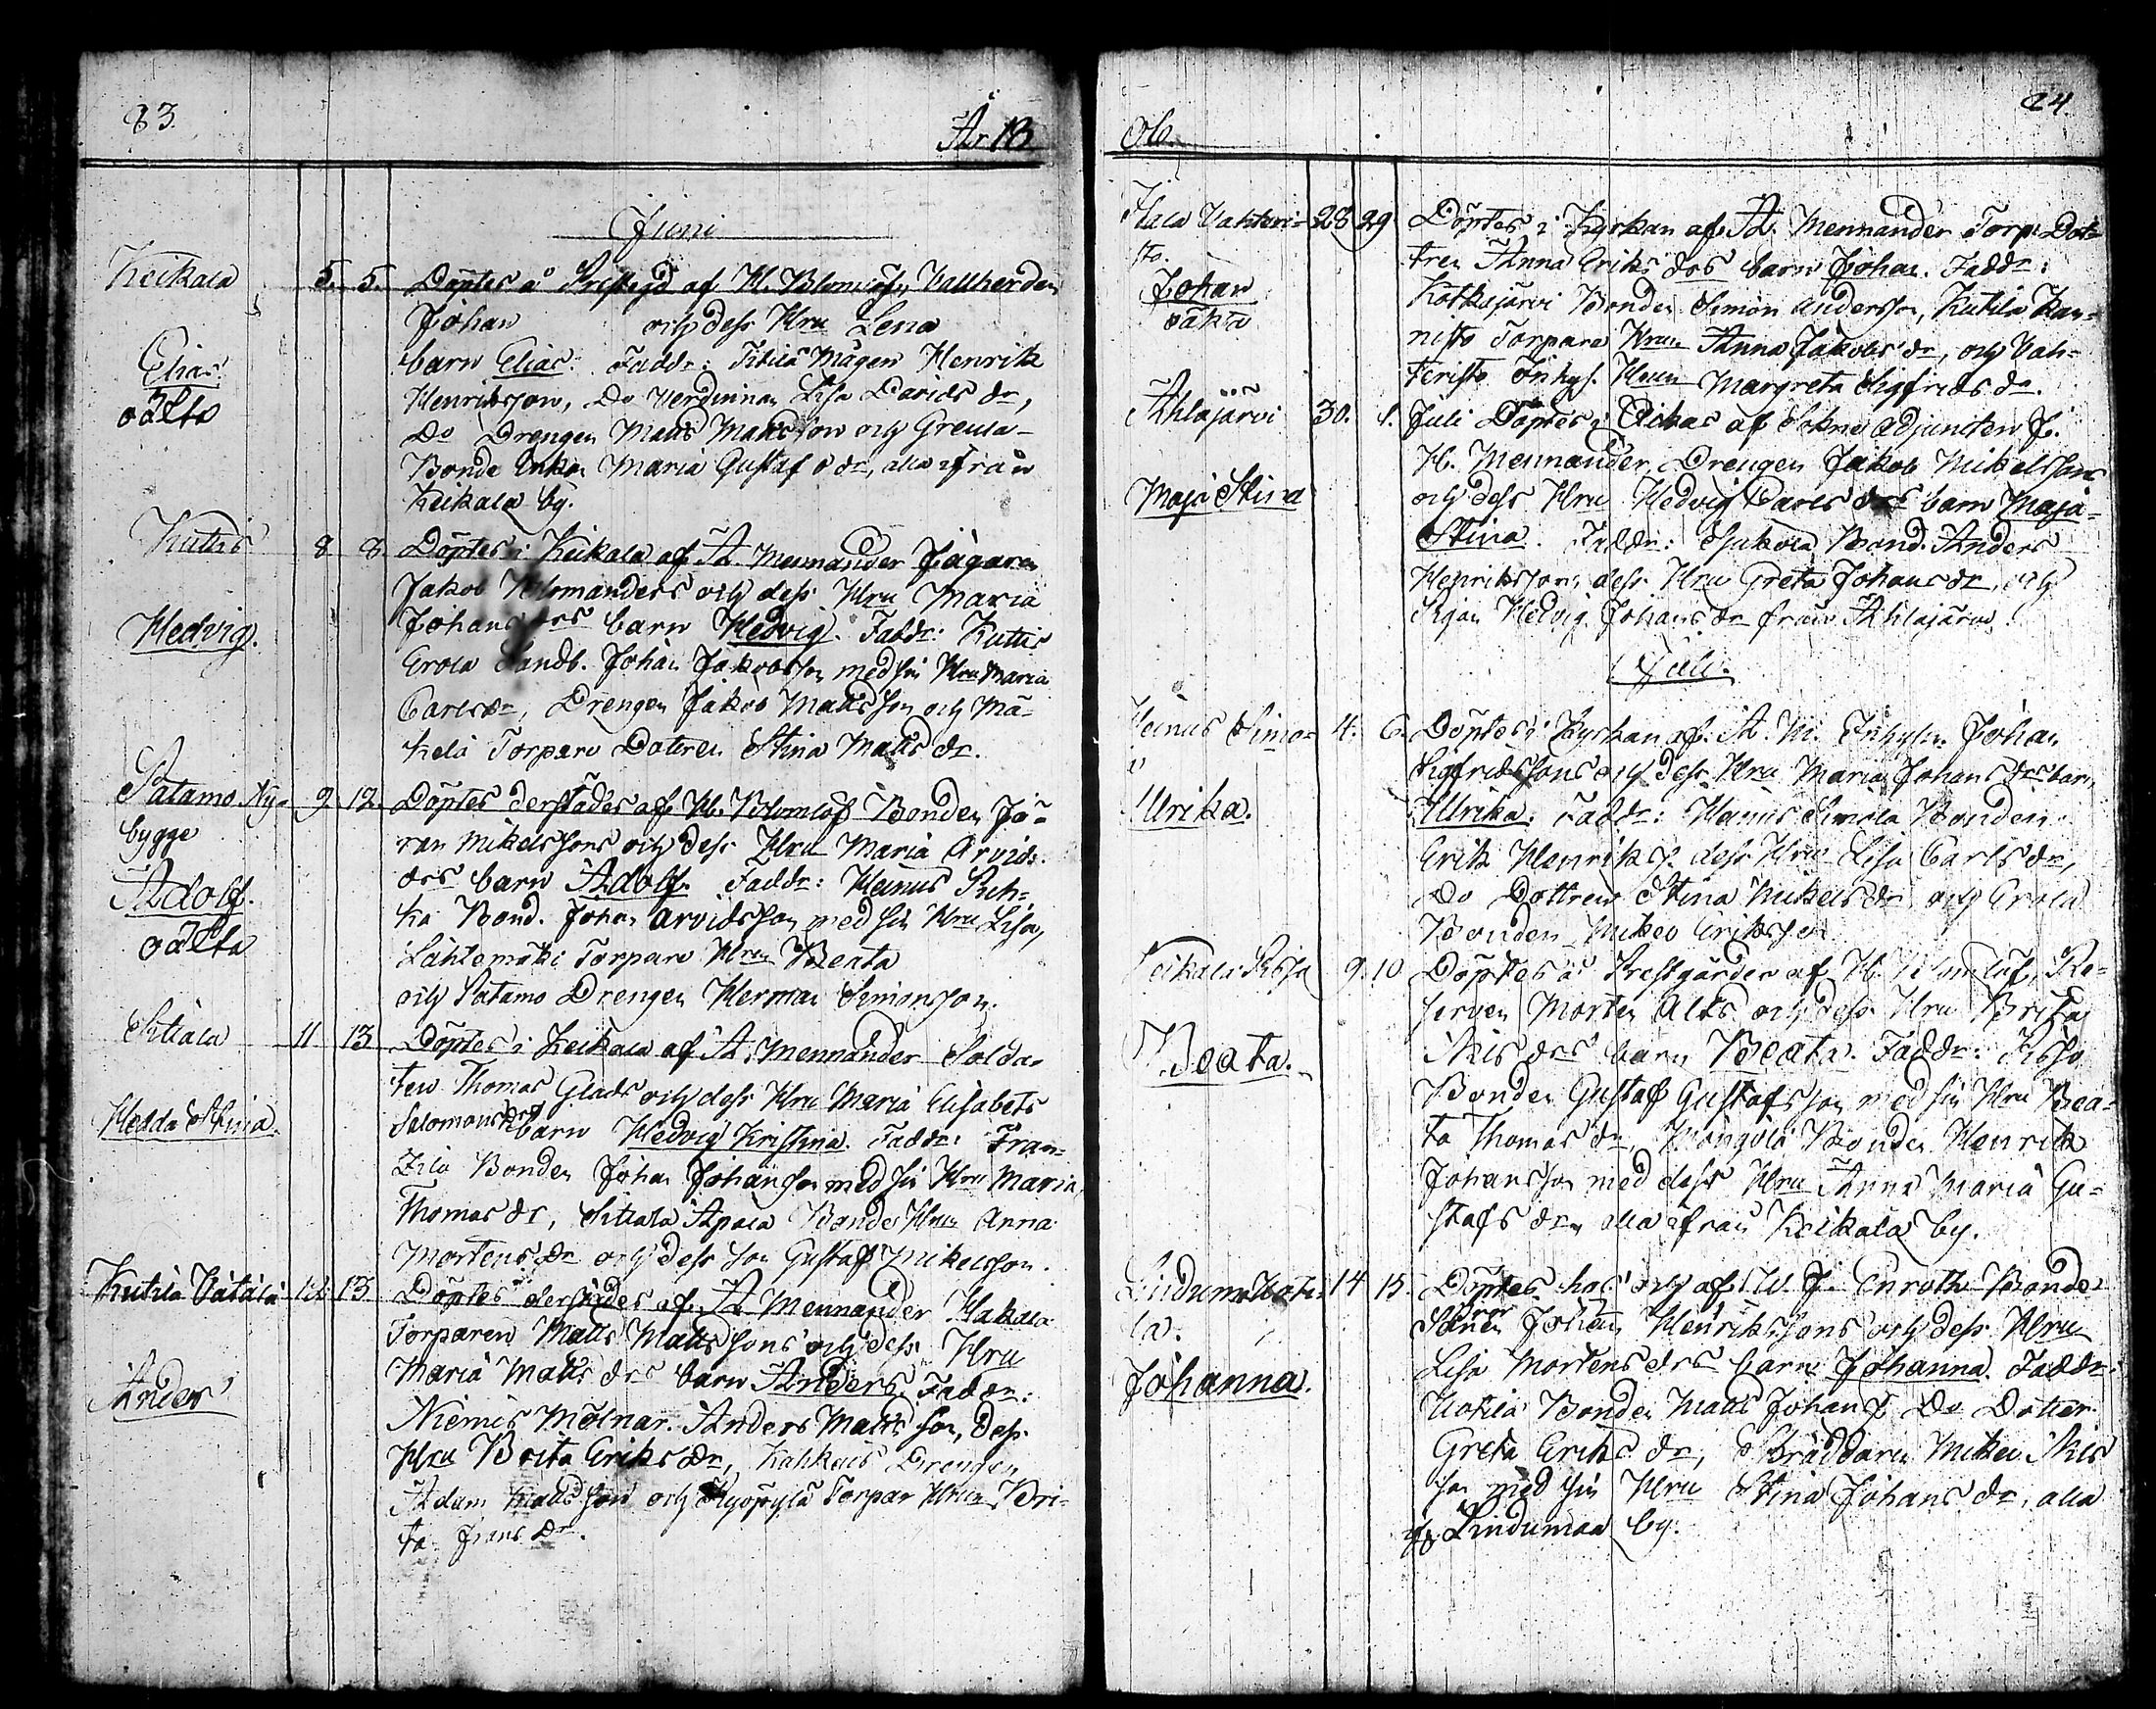 23.
År 18
Juni
Keikala 5. 5. Döptes å Prestgd af H. Blomlöf, Vallherden
Johan och dess Hru Lena
Elias.
oäkta
barn Elias. Faddr: Titilä Mågen Henrik
Henriksson, Do Verdinnan Lisa Davids dr,
Do Drengen Matts Mattsson och Greula
Bonde Enkan Maria Gustafs dr, alla ifrån
Keikala by.
Kuttis 8 8 Döptes i Keikala af A. Mennander Jägaren
Jakob Blomanders och dess Hru Maria
Hedvig.
Johans drs barn Hedvig. Faddr: Kuttis
Erola Landb. Johan Jakobsson med sin Hru Maria
Carlsdr, Drengen Jakob Mattsson och Mä-
kelä Torpare Dottren Stina Matts dr.
Satamo Ny- 9 12. Döptes derstädes af H. Blomlöf Bonden Jö-
bygge
ran Mikelssons och dess Hru Maria Arvids
Adolf.
oäkta
drs barn Adolf. Faddr: Heinus Reh-
ka Bond. Johan Arvidsson med sin Hru Lisa,
Lähtemäki Torpare Hrun Beata
och Satamo Drengen Herman Simonsson.
Sitiala 11 13 Döptes i Keikala af A. Mennander Solda-
ten Thomas Glads och dess Hru Maria Elisabets
Hedda Stina.
Salomons drs barn Hedvig Kristina. Faddr: Fran-
tzila Bonden Johan Johansson med sin Hru Maria
Thomas dr, Sitiala Apaia Bonde Hrun Anna
Mortens dr och dess son Gustaf Mikelsson.
Kutila Vätälä 12 13 Döptes derstädes af A Mennander Hakala
Torparen Matts Mattssons och dess Hru
Anders
Maria Matts drs barn Anders. Faddr:
Niemis Mölnar. Anders Mattsson, dess
Hru Brita Eriks dr, Kahkais Drengen
Adam Mattsson och Torpar Hrun Bri-
ta Frans dr.
24.
06.
28 29 Döptes i Kyrkan af A. Mennander Torp. Dot-
sto.
tren Anna Eriks drs barn Johan. Faddr:
Johan
oäkta
Kotkajärvi Bonden Simon Andersson, Kutila Kan-
nisto Torpare Hrun Anna Jakobs dr, och Vah-
teristo Inhys. Hrun Margreta Sigfrids dr.
Ahlajärvi 30. 1. Juli Döptes i af Sokne Adjuncten J.
H. Mennander, Drengen Jakob Mikelssons
Maja Stina
och dess Hru Hedvig Carls drs barn Maja
Stina. Faddr: Bond. Anders
Henriksson, dess Hru Greta Johans dr, och
Pigan Hedvig Johans dr från Ahlajärvi.
Juli.
Heinus Simo- 4. 6. Döptes i Kyrkan af A. M. Inhyses. Johan
Sigfridssons och dess Hru Maria Johans drs barn
Ulrika.
Ulrika. Faddr: Hainus Simola Bonden
Erik Henriks. dess Hru Lisa Carls dr,
Do Dottren Stina Mikels dr och Erola
Bonden Mikel Eriksson
Keikala 9. 10 Döptes å Prestgården af H. Blomlöf, Re-
serven Morten Alts och dess Hru Brita
Beata.
Nils drs barn Beata. Faddr:
Bonden Gustaf Gustafsson med sin Hru Bea-
ta Thomas dr, Bonden Henrik
Johansson med dess Hru Anna Maria Gu-
stafs dr, alla från Keikala by.
Lindumaa Uoti- 14 15. Döptes hos och af W. J. Enroth Bonde
la.
Sonen Johan Henrikssons och dess Hru
Johanna.
Lisa Mortens drs barn Johanna. Faddr:
Uotila Bonden Matts Johans. Do Dotter
Greta Eriks dr, Skräddarn Mikel Nils
son med sin Hru Stina Johans dr, alla
if. Lindumaa by.